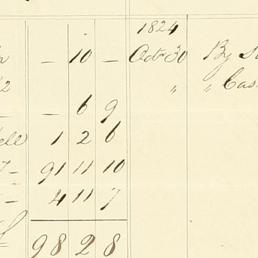 1824
— 10 — Oct 30 By
2 " " Cas
— 6 9
ell 1 2 6
7 — 91 11 10
— 4 11 7
98 2 8